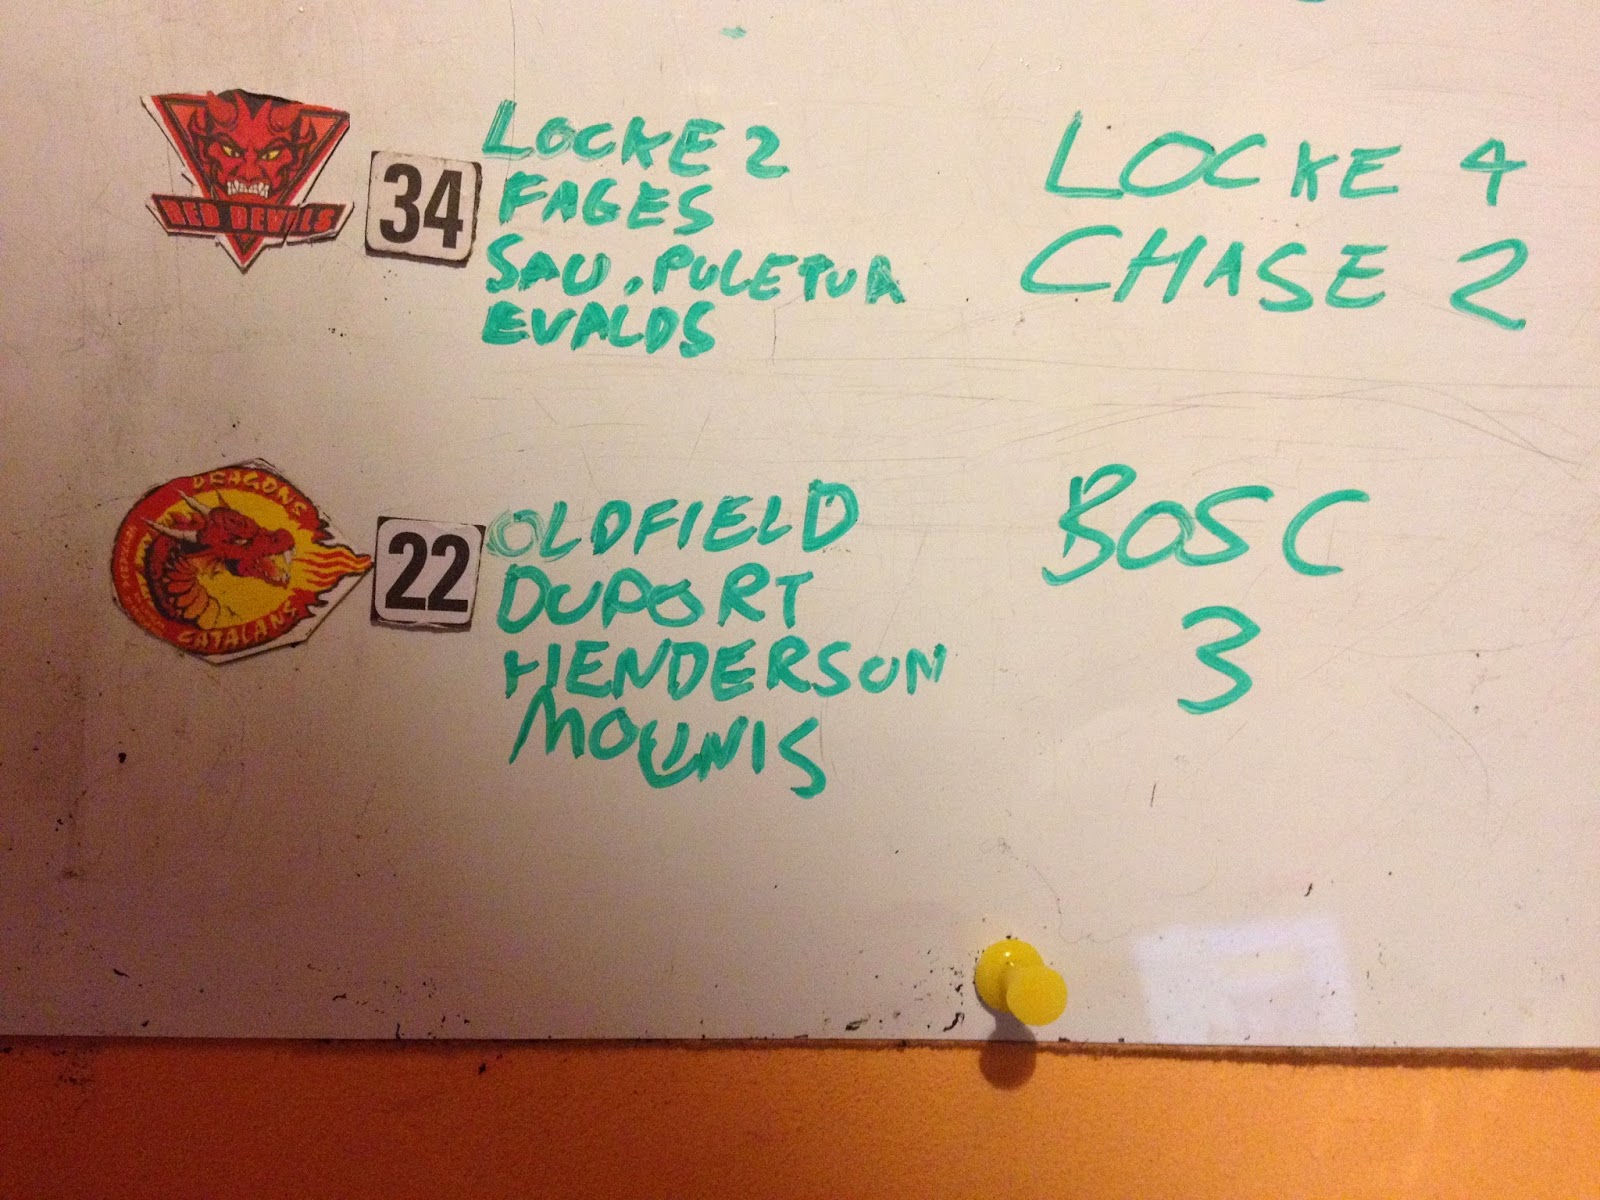 RED DEVILS
34
LOCKE 2
FAGES
SAU. PULETUA
EVALDS
LOCKE 4
CHASE 2
DRAGONS
CATALANS
22
OLDFIELD
DUPORT
HENDERSON
MOUNIS
BOSC
3